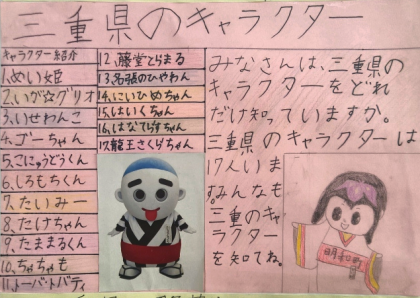 三重県のキャラクター
キャラクター紹介
1.めい姫
2.いが☆グリオ
3.いせわんこ
4.ゴーちゃん
5.こにゅうどうくん
6.しろもちくん
7.たいみー
8.たけちゃん
9.たままるくん
10.ちゃちゃも
11.トーバ・トバティ
12.藤堂とらまる
13.名張のひやわん
14.にいひめちゃん
15.はいくちゃん
16.はなてらすちゃん
17.龍王さくらちゃん
みなさんは、三重県の
キャラクターをどれ
だけ知っていますか。
三重県のキャラクターは
17人いま
すみんなも
三重のキャ
ラクター
を知てね。
明和町